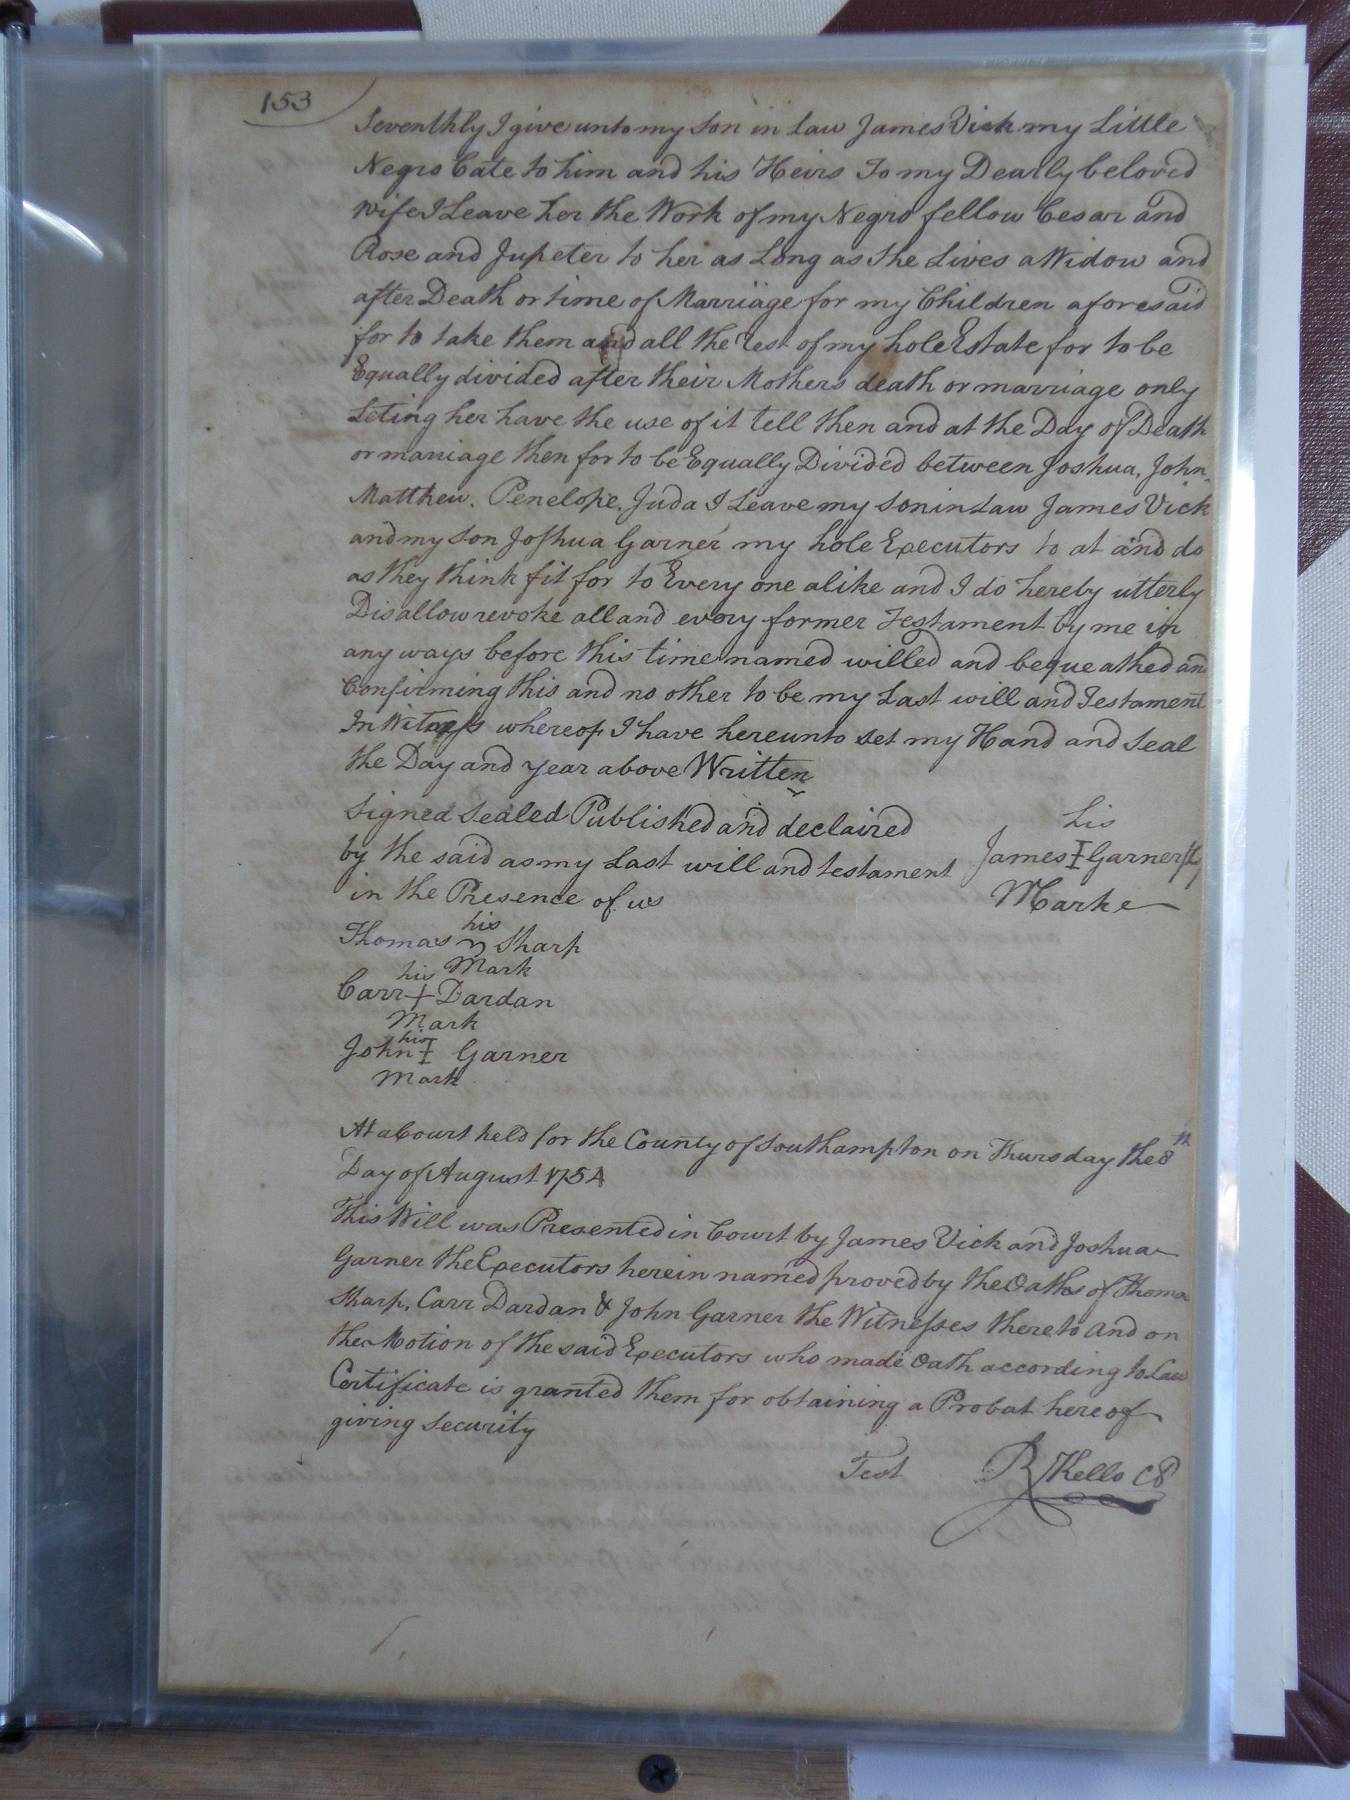 153
Seventhly I give unto my Son in Law James Vick my Little
Negro Cate to him and his Heirs To my Dearly beloved
Wife I Leave her the Work of my Negro fellow Cesar and
Rose and Jupeter to her as Long as she Lives a Widow and
after Death or time of Marriage for my Children aforesaid
for to take them and all the Rest of my hole Estate for to be
Equally divided after their Mothers death or marriage only
Leting her have the use of it tell then and at the Day of Death
or marriage then for to be Equally Divided between Joshua, John,
Matthew, Penelope, Juda I Leave my son in Law James Vick
and my Son Joshua Garner my hole Executors to at and do
as they think fit for to Every one alike and I do hereby utterly
Disallow revoke all and every former Testament by me in
any ways before this time named willed and bequeathed and
Confirming this and no other to be my Last will and Testament
In Witness whereof I have hereunto set my Hand and Seal
the Day and year above Written
Signed Sealed Published and declaired
by the said as my Last will and testament
in the Presence of us
his
James I Garner
Marke
his
Thomas Sharp
Mark
his
Carr + Dardan
Mark
his
John I Garner
Mark
At a Court held for the County of Southampton on Thursday the 8th
Day of August 1754
This Will was Presented in Court by James Vick and Joshua
Garner the Executors herein named proved by the Oaths of Thomas
Sharp, Carr Dardan & John Garner the Witnesses thereto and on
the Motion of the said Executors who made Oath according to Law
Certificate is granted them for obtaining a Probat hereof
giving Security
Test R Kello CC